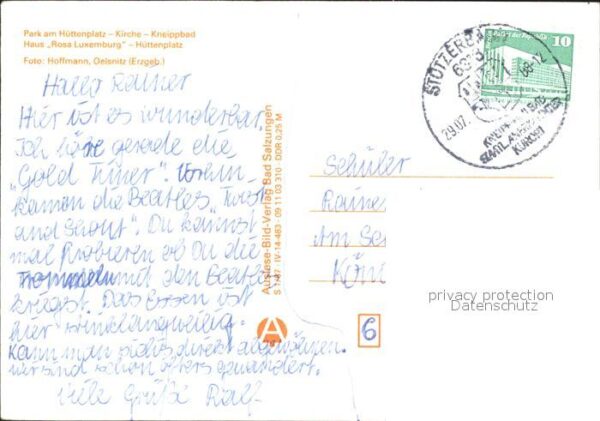 Park am Hüttenplatz – Kirche – Kneippbad
Haus „Rosa Luxemburg" – Hüttenplatz
Foto: Hoffmann, Oelsnitz (Erzgeb.)
Hallo Rainer
Hier ist es wunderbar.
Ich höre gerade die
„Gold Finer". Vorhin
kamen die Beatles „Twist
and Schout". Du kannst
mal Probieren ob Du die
und den Beatles
kriegst. Das Essen ist
hier
Kann man nichts direkt
wir sind schon öfters gewandert.
Viele Grüße Ralf
Auslese-Bild-Verlag Bad Salzungen
S 1/87 IV-14-483 · 09 11 03 310 · DDR 0,25 M
A
STÜTZERBACH
29.07.
-12
KNEIPPBAD
KURORT
10
Schüler
Raine
Am Se
6
privacy protection
Datenschutz